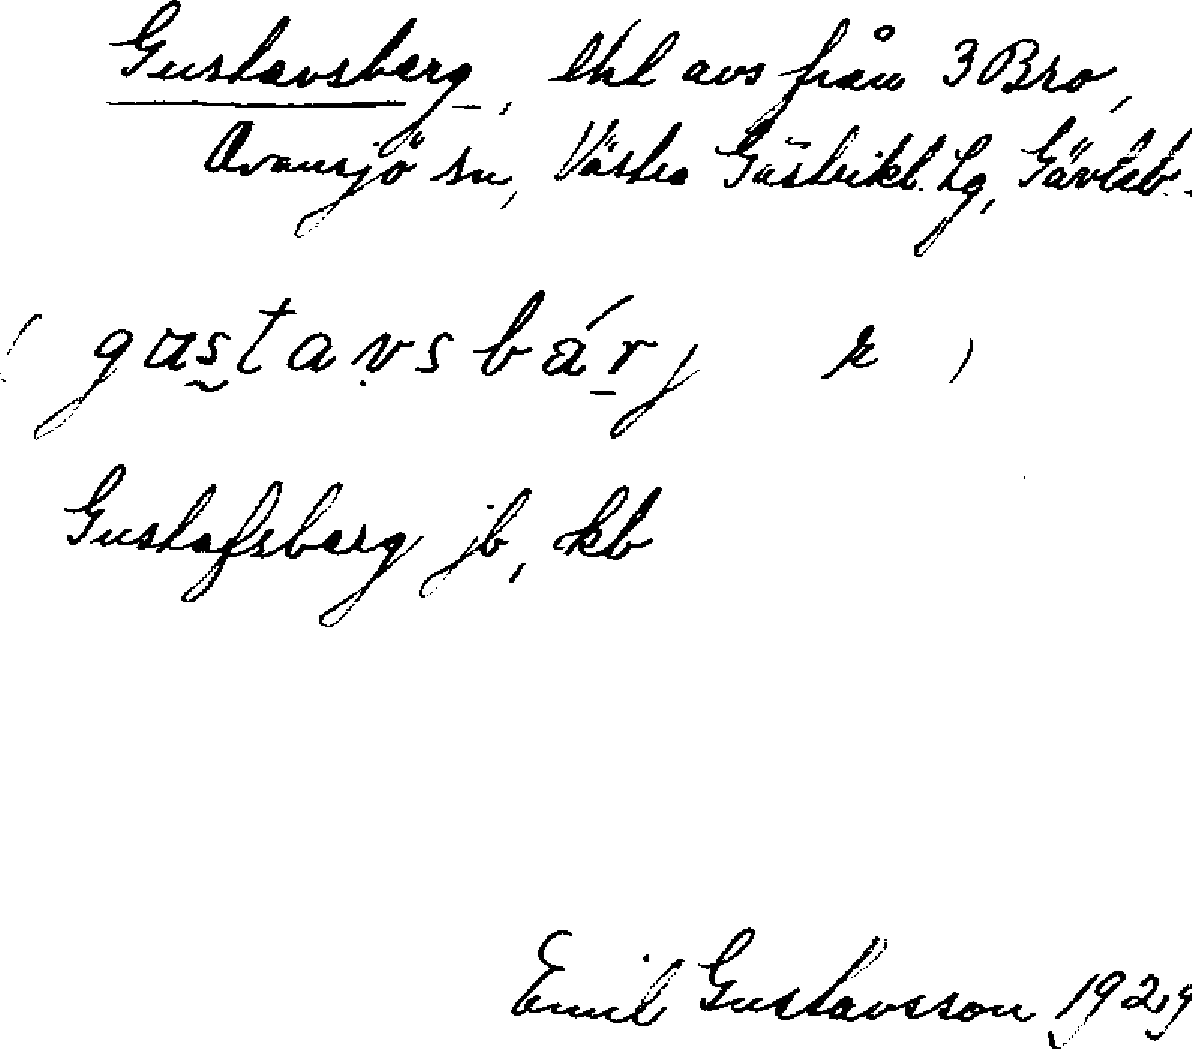 Gustavsberg, lhl avs från 3 Bro,
Ovansjö sn, Västra Gästrikl. Lg, Gävleb.
( gustavsbárj k )
Gustafsberg jb, kb
Emil Gustavsson 1929